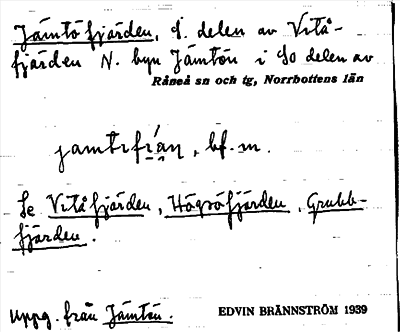 Jämtöfjärden, d. delen av Vitå-
fjärden N. byn Jämtön i SO delen av
Råneå sn och tg, Norrbottens län
jamtɩfi̯án, bf. m.
Se Vitåfjärden, Högsöfjärden, Grubb-
fjärden.
Uppg. från Jämtön.
EDVIN BRÄNNSTRÖM 1939